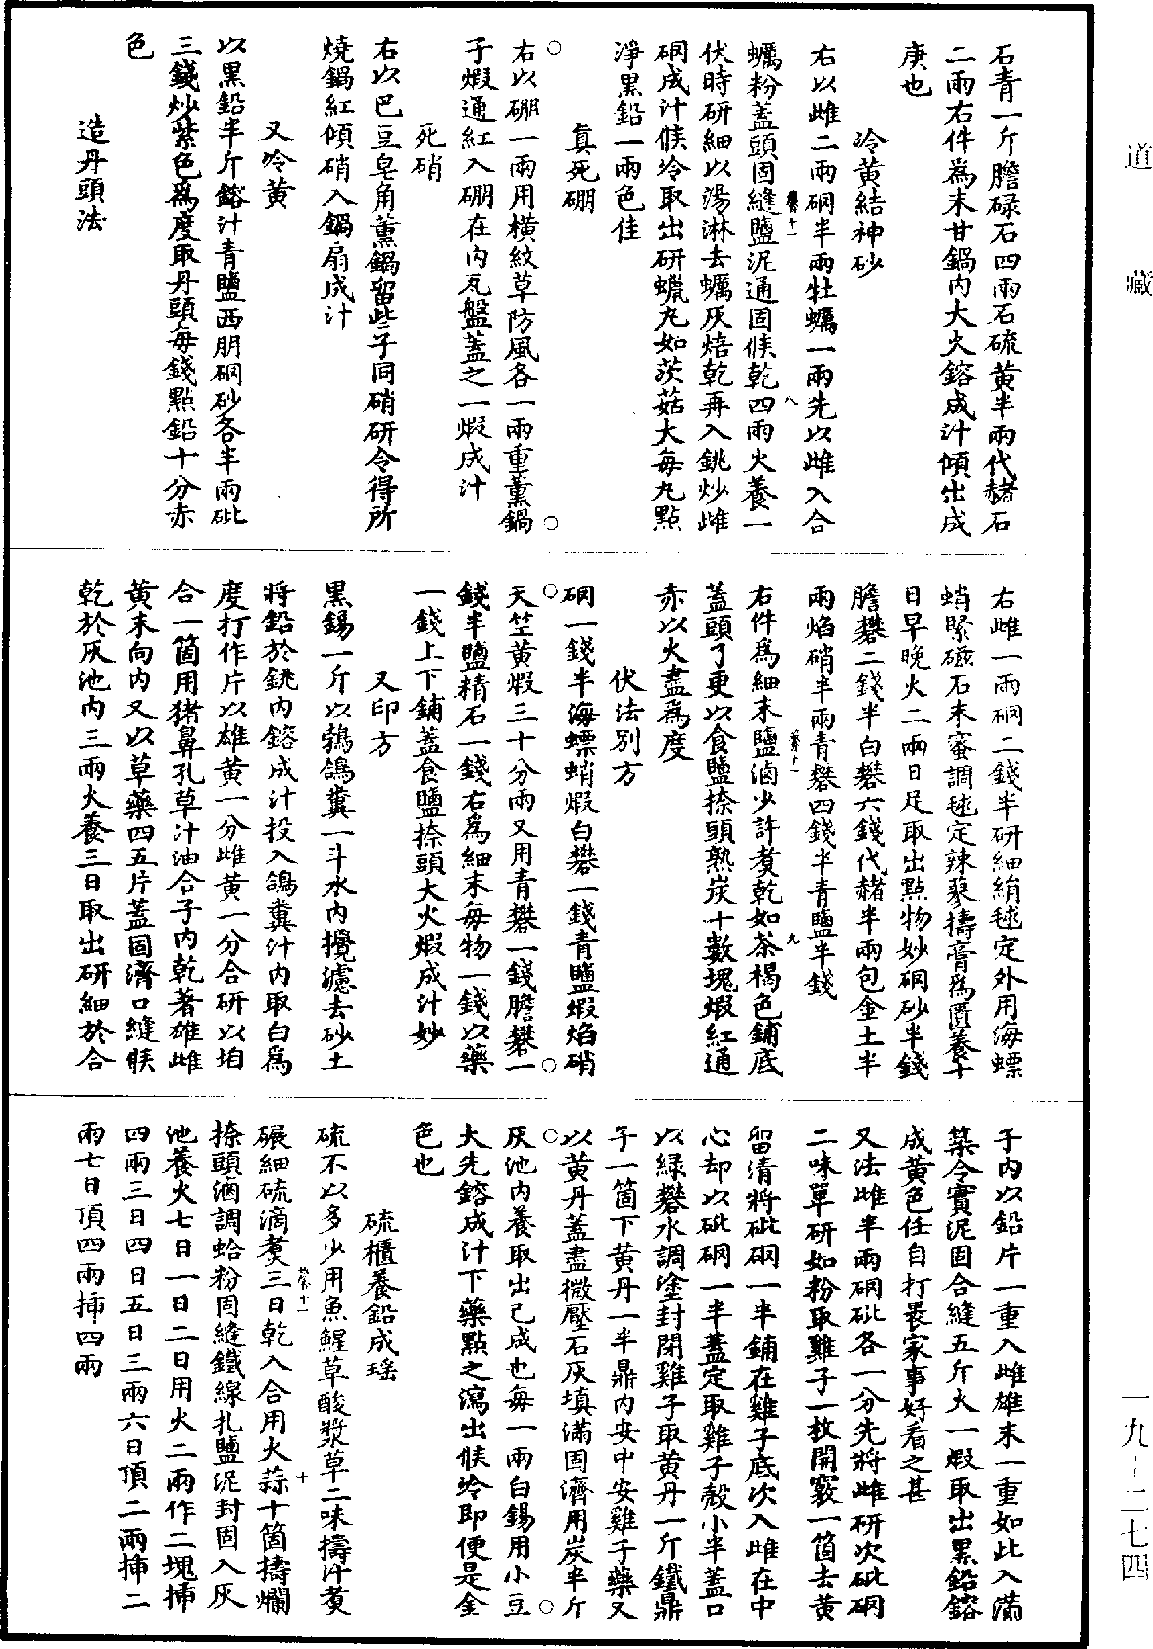 道藏
石青一斤膽碌石四兩石硫黃半兩代赭石
二兩右件為末甘鍋內大火鎔成汁傾出成
庚也
冷黃結神砂
右以雌二兩硇半兩牡蠣一兩先以雌入合
蠣粉蓋頭固縫鹽泥通固候乾四兩火養一
伏時研細以湯淋去蠣灰焙乾再入銚炒雌
硇成汁候冷取出研蠟丸如茨菇大每丸點
淨黑鉛一兩色佳
真死硼
右以硼一兩用橫紋草防風各一兩重薰鍋
子煆通紅入硼在內瓦盤蓋之一煆成汁
死硝
右以巴豆皂角薰鍋留些子同硝研令得所
燒鍋紅傾硝入鍋扇成汁
又呤黃
以黑鉛半斤鎔汁青鹽西朋硇砂各半兩砒
三錢炒紫色為度取丹頭每錢點鉛十分赤
色
造丹頭法
右雌一兩硇二錢半研細絹毬定外用海螵
蛸緊磁石末蜜調毬定辣蓼擣膏為匱養十
日早晚火二兩日足取出點物妙硇砂半錢
膽礬二錢半白礬六錢代赭半兩包金土半
兩焰硝半兩青礬四錢半青鹽半錢
右件為細末鹽滷少許煑乾如茶褐色鋪底
蓋頭了更以食鹽捺頭熟炭十數塊煆紅通
赤以火盡為度
伏法別方
硇一錢半海螵蛸煆白礬一錢青鹽煆焰硝
天竺黃煆三十分兩又用青礬一錢膽礬一
錢半鹽精石一錢右為細末每物一錢以藥
一錢上下鋪蓋食鹽捺頭大火煆成汁妙
又印方
黑錫一斤以鵓鴿糞一斗水內攪濾去砂土
將鉛於銚內鎔成汁投入鴿糞汁內取白為
度打作片以雄黃一分雌黃一分合研以坩
合一箇用猪鼻孔草汁油合子內乾著雄雌
黃末向內又以草藥四五片蓋固濟口縫候
乾於灰池內三兩火養三日取出研細於合
子內以鉛片一重入雌雄末一重如此入滿
築令實泥固合縫五斤火一煆取出黑鉛鎔
成黃色任自打褁家事好看之甚
又法雌半兩硇砒各一分先將雌研次砒硇
二味單研如粉取雞子一枚開竅一箇去黃
留清將砒硇一半鋪在雞子底次入雌在中
心却以砒硇一半蓋定取雞子殼小半蓋口
以綠礬水調塗封閉雞子取黃丹一斤鐵鼎
子一箇下黃丹一半鼎內安中安雞子藥又
以黃丹蓋盡微壓石灰填滿固濟用炭半斤
灰池內養取出已成也每一兩白錫用小豆
大先鎔成汁下藥點之瀉出候冷即便是金
色也
硫櫃養鉛成瑤
硫不以多少用魚鯹草酸漿草二味擣汁煑
碾細硫滴煑三日乾入合用火蒜十箇擣爛
捺頭滷調蛤粉固縫鐵線扎鹽泥封固入灰
池養火七日一日二日用火二兩作二塊挿
四兩三日四日五日三兩六日頂二兩挿二
兩七日頂四兩挿四兩
一九-二七四